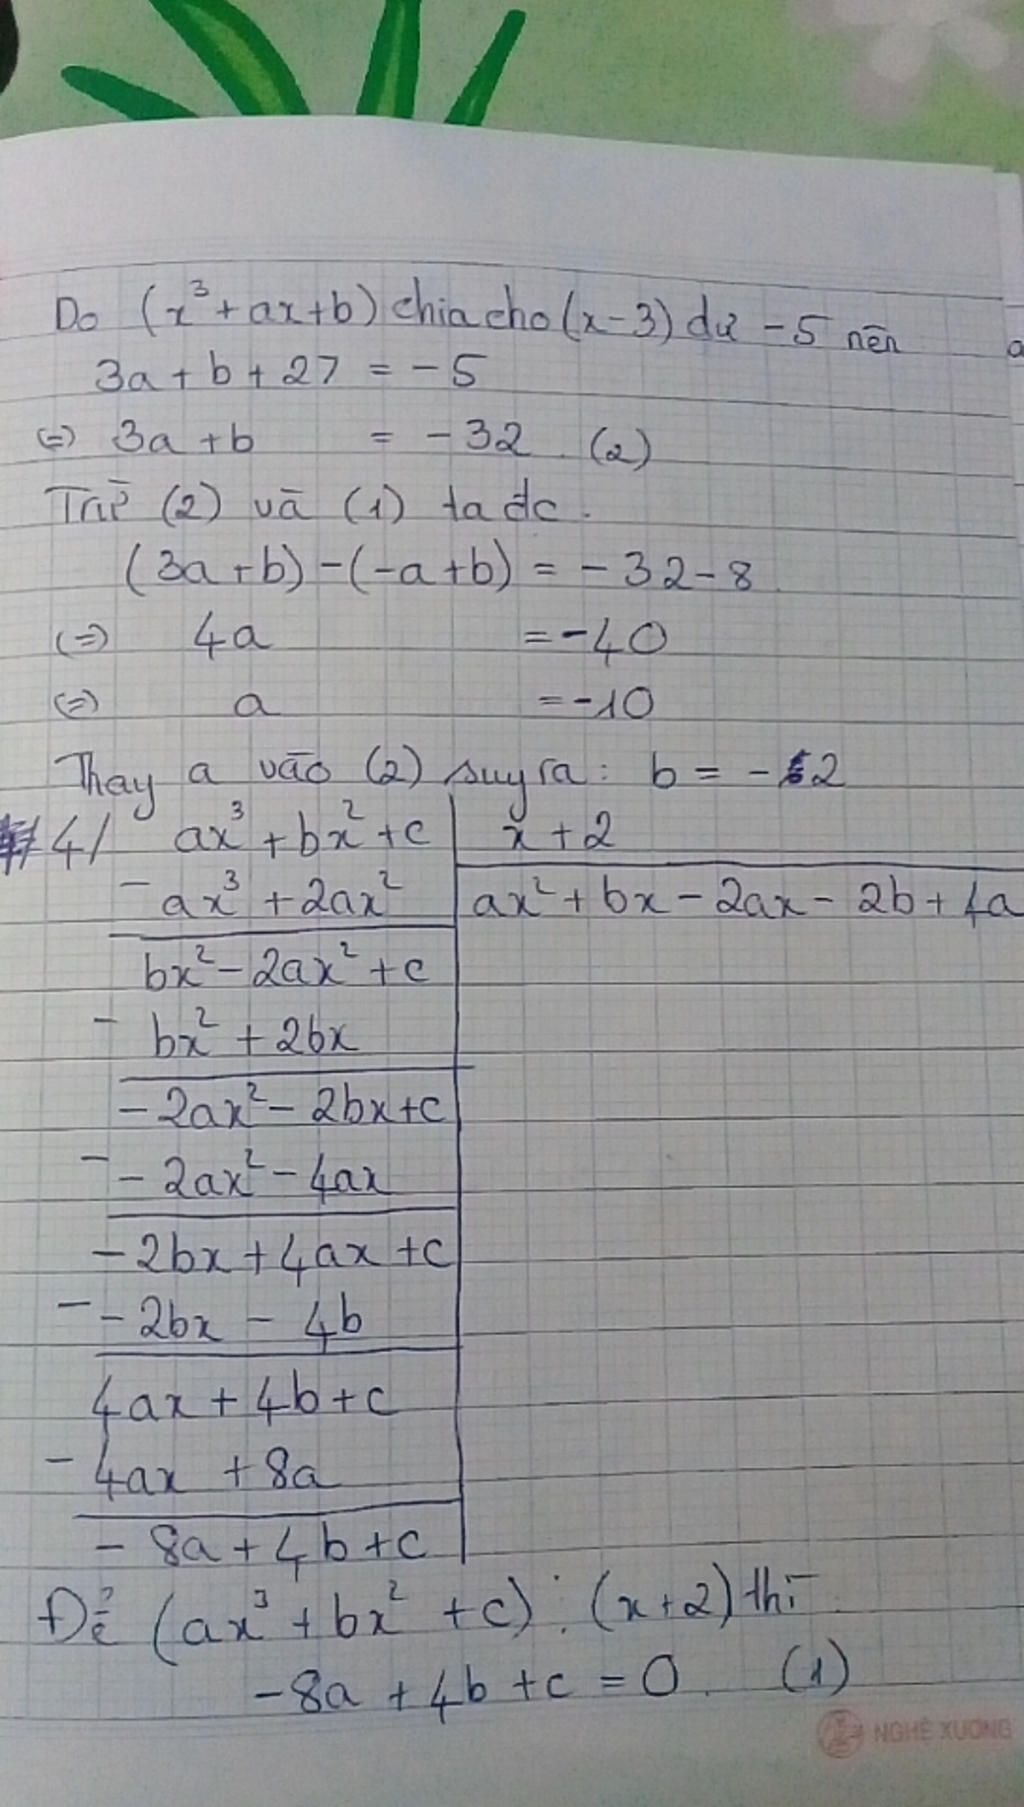 Do (x³ + ax + b) chia cho (x - 3) dư - 5 nên
3a + b + 27 = - 5
(=) 3a + b = - 32 (2)
Trừ (2) và (1) ta đc.
(3a + b) - (-a + b) = - 32 - 8
(=) 4a = - 40
(=) a = - 10
Thay a vào (2) suy ra: b = - 2
4/ ax³ + bx² + c | x + 2
- ax³ + 2ax² | ax² + bx - 2ax - 2b + 4a
bx² - 2ax² + c
- bx² + 2bx
- 2ax² - 2bx + c
- - 2ax² - 4ax
- 2bx + 4ax + c
- - 2bx - 4b
4ax + 4b + c
- 4ax + 8a
- 8a + 4b + c
Để (ax³ + bx² + c) ⋮ (x + 2) thì
- 8a + 4b + c = 0. (1)
NGHÊ XUONG